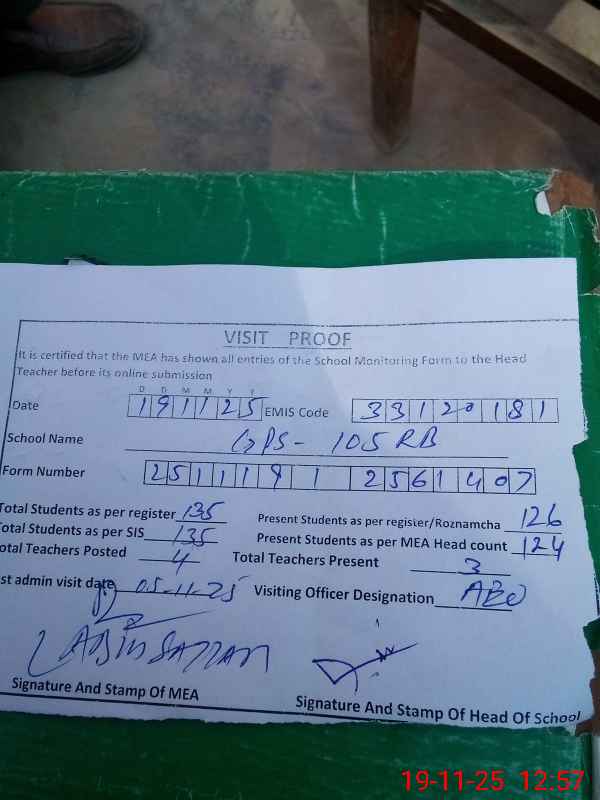 VISIT PROOF
It is certified that the MEA has shown all entries of the School Monitoring Form to the Head
Teacher before its online submission
D D M M Y Y
Date 191125 EMIS Code 33120181
School Name GPS - 105 RB
Form Number 2511191 2561407
Total Students as per register 135 Present Students as per register/Roznamcha 126
Total Students as per SIS 135 Present Students as per MEA Head count 124
otal Teachers Posted 4 Total Teachers Present 3
st admin visit date 05-11-25 Visiting Officer Designation AEO
Signature And Stamp Of MEA Signature And Stamp Of Head Of School
19-11-25 12:57